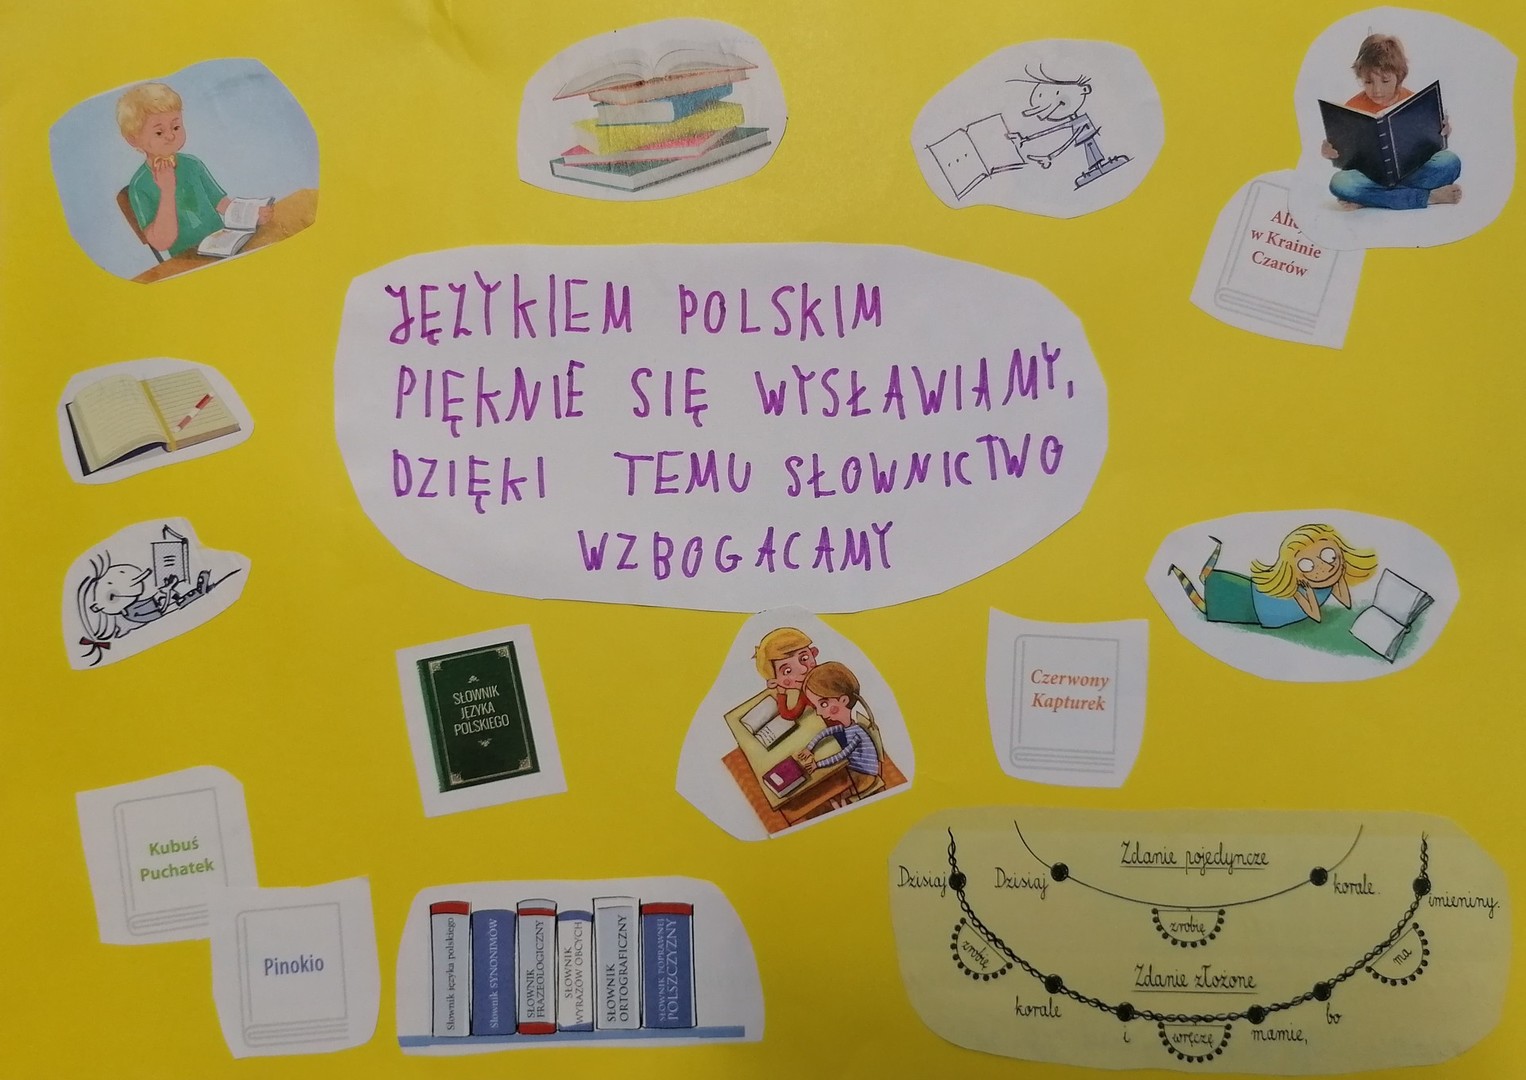 Ali
w Krainie
Czarów
JĘZYKIEM POLSKIM
PIĘKNIE SIĘ WYSŁAWIAMY,
DZIĘKI TEMU SŁOWNICTWO
WZBOGACAMY
SŁOWNIK
JĘZYKA
POLSKIEGO
Czerwony
Kapturek
Kubuś
Puchatek
Pinokio
Słownik języka polskiego
Słownik SYNONIMÓW
SŁOWNIK
FRAZEOLOGICZNY
SŁOWNIK
WYRAZÓW OBCYCH
SŁOWNIK
ORTOGRAFICZNY
SŁOWNIK POPRAWNEJ
POLSZCZYZNY
Zdanie pojedyncze
Dzisiaj zrobię korale.
Zdanie złożone
Dzisiaj zrobię korale i wręczę mamie, bo ma imieniny.